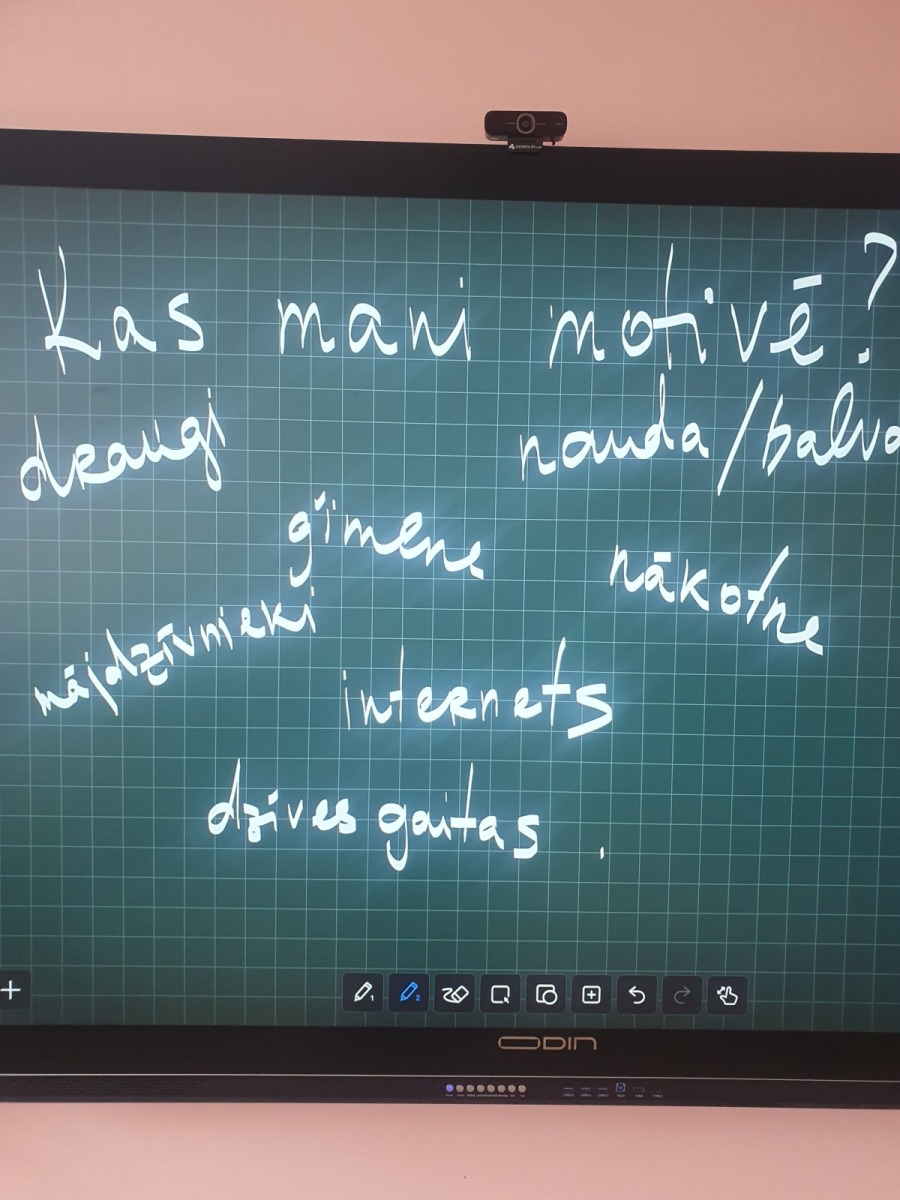 Kas mani motivē?
draugi
nauda/balva
ģimene
nākotne
mājdzīvnieki
internets
dzīves gaitas.
1
2
ODIN